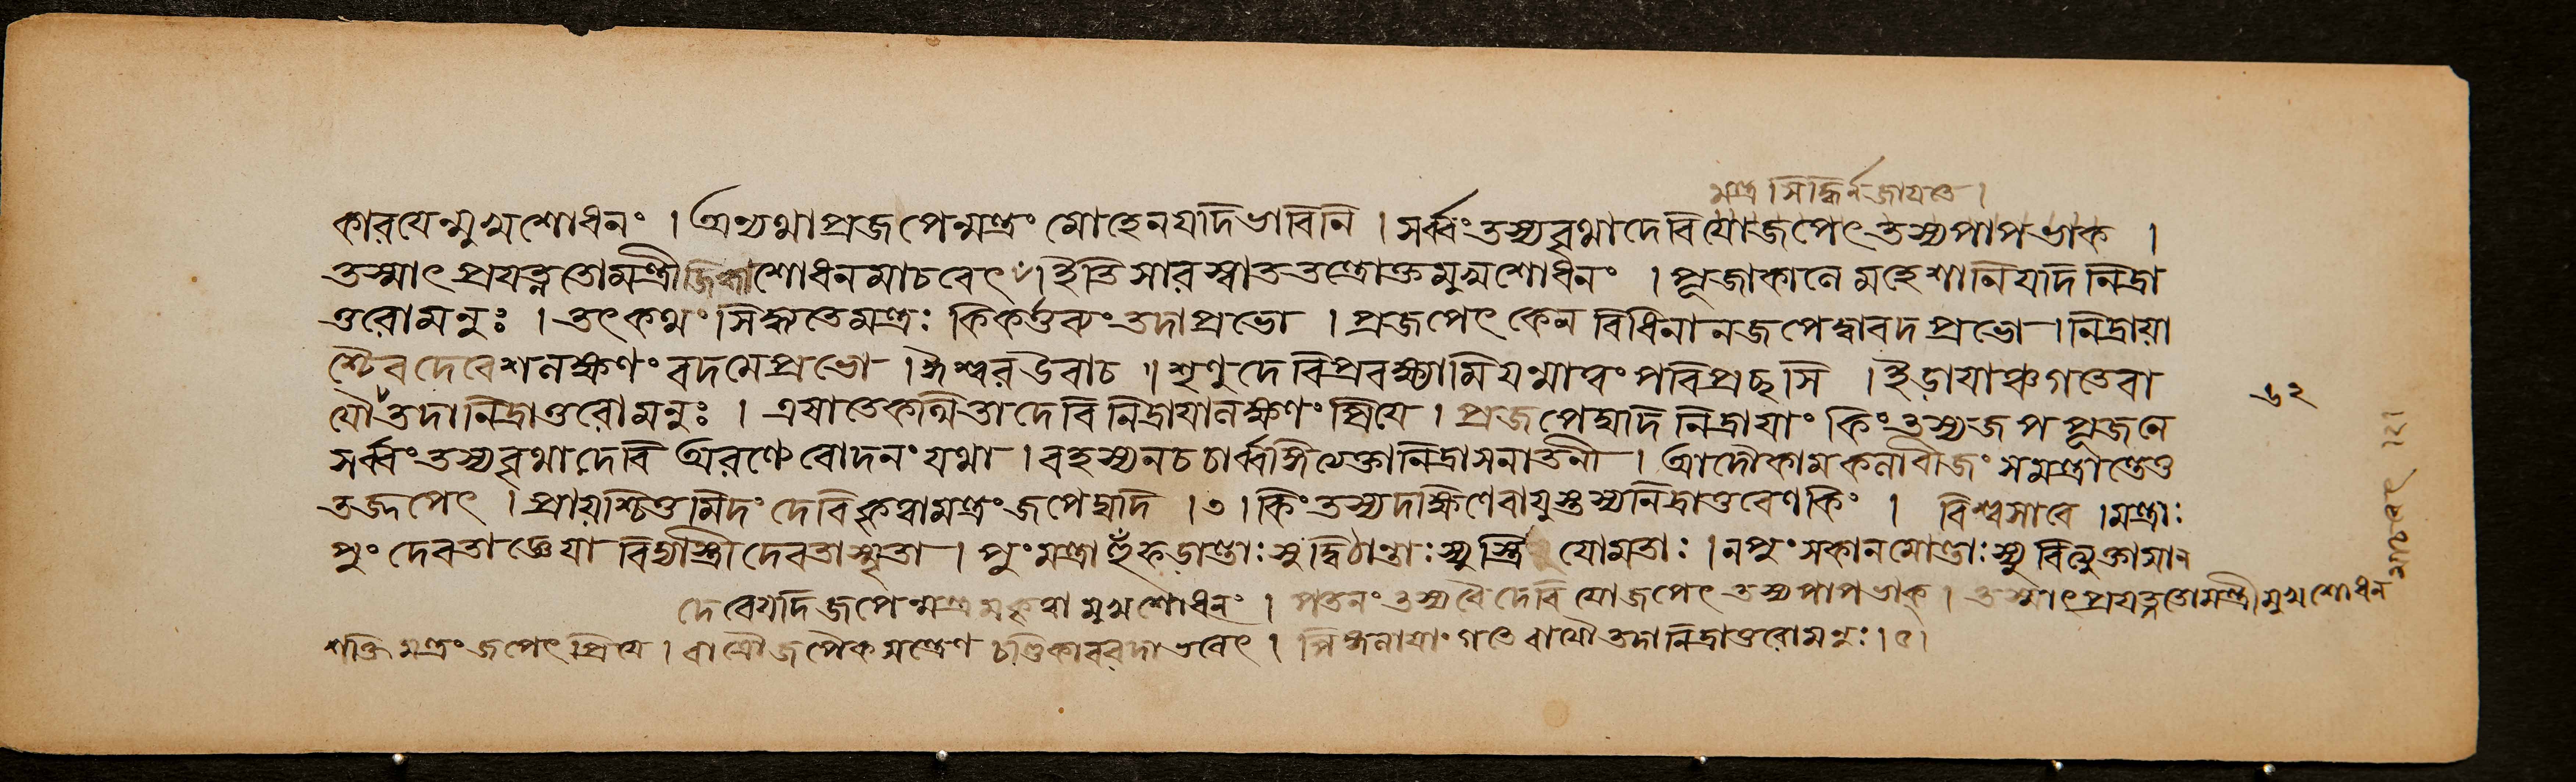 মন্ত্রসিদ্ধির্নজায়তে ।
কারয়েন্মুখশোধনং । অন্যথাপ্রজপেন্মন্ত্রং মোহেনযদিভাবিনি । সর্ব্বংতস্যবৃথাদেবিযোজপেৎতস্যপাপভাক ।
তস্মাৎ প্রযত্নতোমন্ত্রীজিহ্বাশোধনমাচরেৎ । ইতিসারস্বাততন্ত্রোক্তমুখশোধনং । পূজাকালে মহেশানি যদি নিদ্রা
তুরোমনুঃ । তৎকথং সিদ্ধ্যতেমন্ত্রঃ কিংকর্ত্তব্যং তদাপ্রভো । প্রজপেৎ কেন বিধিনানজপেদ্বাবদ প্রভো । নিদ্রায়া
শ্চৈবদেবেশলক্ষণং বদমেপ্রভো । ঈশ্বরউবাচ ॥ শৃণুদেবিপ্রবক্ষ্যামিযন্মাত্বং পরিপ্রছসি । ইড়ায়াঞ্চগতেবা
যৌতদানিদ্রাতুরোমনুঃ । এষাতেকথিতাদেবি নিদ্রায়ালক্ষণং প্রিয়ে । প্রজপেদ্যদি নিদ্রায়াং কিং তস্যজপপূজনে
৬২
সর্ব্বংতস্যবৃথাদেবি অরণ্যেরোদনং যথা । রহস্যনচচার্ব্বঙ্গিত্যেক্তানিদ্রাসনাতনী । আদৌকামকলাবীজং সমন্ত্রান্তেত্ত
তজপেৎ । প্রায়শ্চিত্তমিদং দেবিকৃত্বামন্ত্রং জপেদ্যদি । ৩ । কিংতস্যদক্ষিণেবায়ুস্তস্যনিদ্রাতুরেণকিং । বিশ্বসারে । মন্ত্রাঃ
পুংদেবতাজ্ঞেয়া বিদ্যাস্ত্রীদেবতাস্মৃতা । পুংমন্ত্রাহুঁফড়ান্তাঃস্যুদ্বিঠান্তাঃস্যুস্ত্রিয়োমতাঃ । নপুংসকানমোন্তাঃস্যু
দেবেযদিজপেন্মন্ত্রমকৃত্বামুখশোধনং । পতনং তস্যবৈদেবিযোজপেৎ তস্যপাপভাক্ । তস্মাৎপ্রযত্নতোমন্ত্রীমুখশোধন
শক্তিমন্ত্রং জপেৎপ্রিয়ে । রাত্রৌজপৈক মন্ত্রেণ চণ্ডিকাবরদাভবেৎ । পিঙ্গলায়াং গতে বায়ৌতদানিদ্রাতুরোমনুঃ । ৫ ।